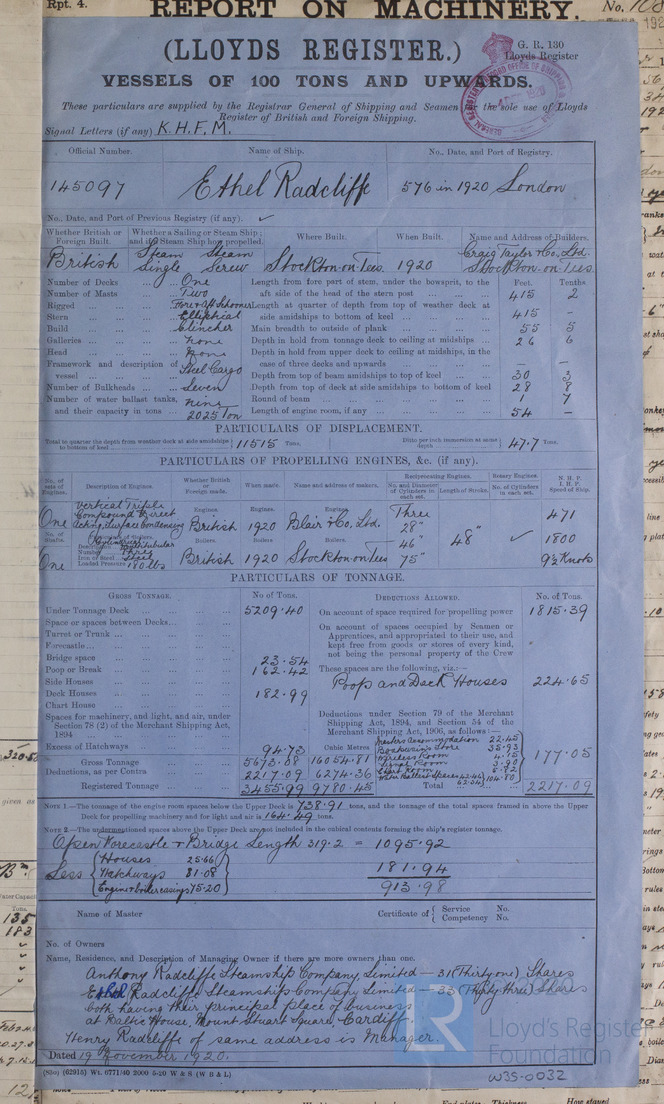 Rpt. 4. REPORT ON MACHINERY. No.
(LLOYDS REGISTER.)
G. R. 130
Lloyds Register
VESSELS OF 100 TONS AND UPWARDS.
These particulars are supplied by the Registrar General of Shipping and Seamen for the sole use of Lloyds
Register of British and Foreign Shipping.
Signal Letters (if any) K.H.F.M.
Official Number. Name of Ship. No., Date, and Port of Registry.
145097 Ethel Radcliffe 576 in 1920 London
No., Date, and Port of Previous Registry (if any). ✓
Whether British or Foreign Built. Whether a Sailing or Steam Ship; and if Steam Ship how propelled. Where Built. When Built. Name and Address of Builders.
British Steam Steam Single Screw Stockton-on-Tees 1920 Craig Taylor & Co., Ltd. Stockton-on-Tees
Feet. Tenths
Number of Decks One Length from fore part of stem, under the bowsprit, to the aft side of the head of the stern post 415 2
Number of Masts Two
Rigged Fore & Aft Schooner Length at quarter of depth from top of weather deck at side amidships to bottom of keel 415 –
Stern Elliptical
Build Clencher Main breadth to outside of plank 55 5
Galleries None Depth in hold from tonnage deck to ceiling at midships 26 6
Head None Depth in hold from upper deck to ceiling at midships, in the case of three decks and upwards – –
Framework and description of vessel Steel Cargo
Depth from top of beam amidships to top of keel 30 3
Number of Bulkheads Seven Depth from top of deck at side amidships to bottom of keel 28 8
Number of water ballast tanks, and their capacity in tons Nine 2025 Ton
Round of beam 1 7
Length of engine room, if any 54 –
PARTICULARS OF DISPLACEMENT.
Total to quarter the depth from weather deck at side amidships to bottom of keel 11515 Tons. Ditto per inch immersion at same depth 47.7 Tons.
PARTICULARS OF PROPELLING ENGINES, &c. (if any).
No. of sets of Engines. Description of Engines. Whether British or Foreign made. When made. Name and address of makers. Reciprocating Engines. No. and Diameter of Cylinders in each set. Length of Stroke. Rotary Engines. No. of Cylinders in each set. N. H. P. I. H. P. Speed of Ship.
One Vertical Triple Compound Direct Acting, Surface Condensing Engines. British Engines. 1920 Engines. Blair & Co., Ltd. Three 28" 471
No. of Shafts. Description Number Three Iron or Steel Steel Loaded Pressure 180 lbs
Boilers. Boilers. Boilers. 46" 48" ✓ 1800
One British 1920 Stockton-on-Tees 75" 9½ Knots
PARTICULARS OF TONNAGE.
GROSS TONNAGE. No. of Tons. DEDUCTIONS ALLOWED. No. of Tons.
Under Tonnage Deck 5209.40 On account of space required for propelling power 1815.39
Space or spaces between Decks
Turret or Trunk
Forecastle
On account of spaces occupied by Seamen or Apprentices, and appropriated to their use, and kept free from goods or stores of every kind, not being the personal property of the Crew
Bridge space 23.54
Poop or Break 162.42 These spaces are the following, viz.:—
Side Houses Poop and Deck Houses 224.65
Deck Houses 182.99
Chart House
Spaces for machinery, and light, and air, under Section 78 (2) of the Merchant Shipping Act, 1894
Deductions under Section 79 of the Merchant Shipping Act, 1894, and Section 54 of the Merchant Shipping Act, 1906, as follows:—
Excess of Hatchways 94.73 Cubic Metres Master's Accommodation 22.45
Boatswain's Store 35.93
Gross Tonnage 5673.08 16054.81 Wireless Room 4.15 177.05
Deductions, as per Contra 2217.09 6274.36
Registered Tonnage 3455.99 9780.45 104.80 Total 2217.09
NOTE 1.—The tonnage of the engine room spaces below the Upper Deck is 738.91 tons, and the tonnage of the total spaces framed in above the Upper
Deck for propelling machinery and for light and air is 164.49 tons.
NOTE 2.—The undermentioned spaces above the Upper Deck are not included in the cubical contents forming the ship's register tonnage.
Open Forecastle & Bridge Length 319.2 = 1095.92
Less { Houses 25.66
Hatchways 81.08 181.94
Engine & boiler casings 75.20 913.98
Name of Master Certificate of { Service No.
Competency No.
No. of Owners
Name, Residence, and Description of Managing Owner if there are more owners than one.
Anthony Radcliffe Steamship Company, Limited — 31 (Thirty one) Shares
Ethel Radcliffe Steamship Company, Limited — 33 (Thirty three) Shares
both having their principal place of business
at Baltic House, Mount Stuart Square, Cardiff.
Henry Radcliffe of same address is Manager.
Dated 19 November 1920.
(5lio) (62915) Wt. 6771/40 2000 5-20 W & S (W B & L)
Lloyd's Register
Foundation
W35-0032